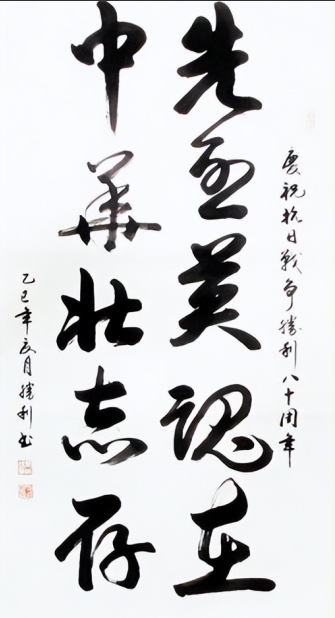 慶祝抗日戰争勝利八十周年
先烈英魂在
中華壮志存
乙巳年夏月勝利书